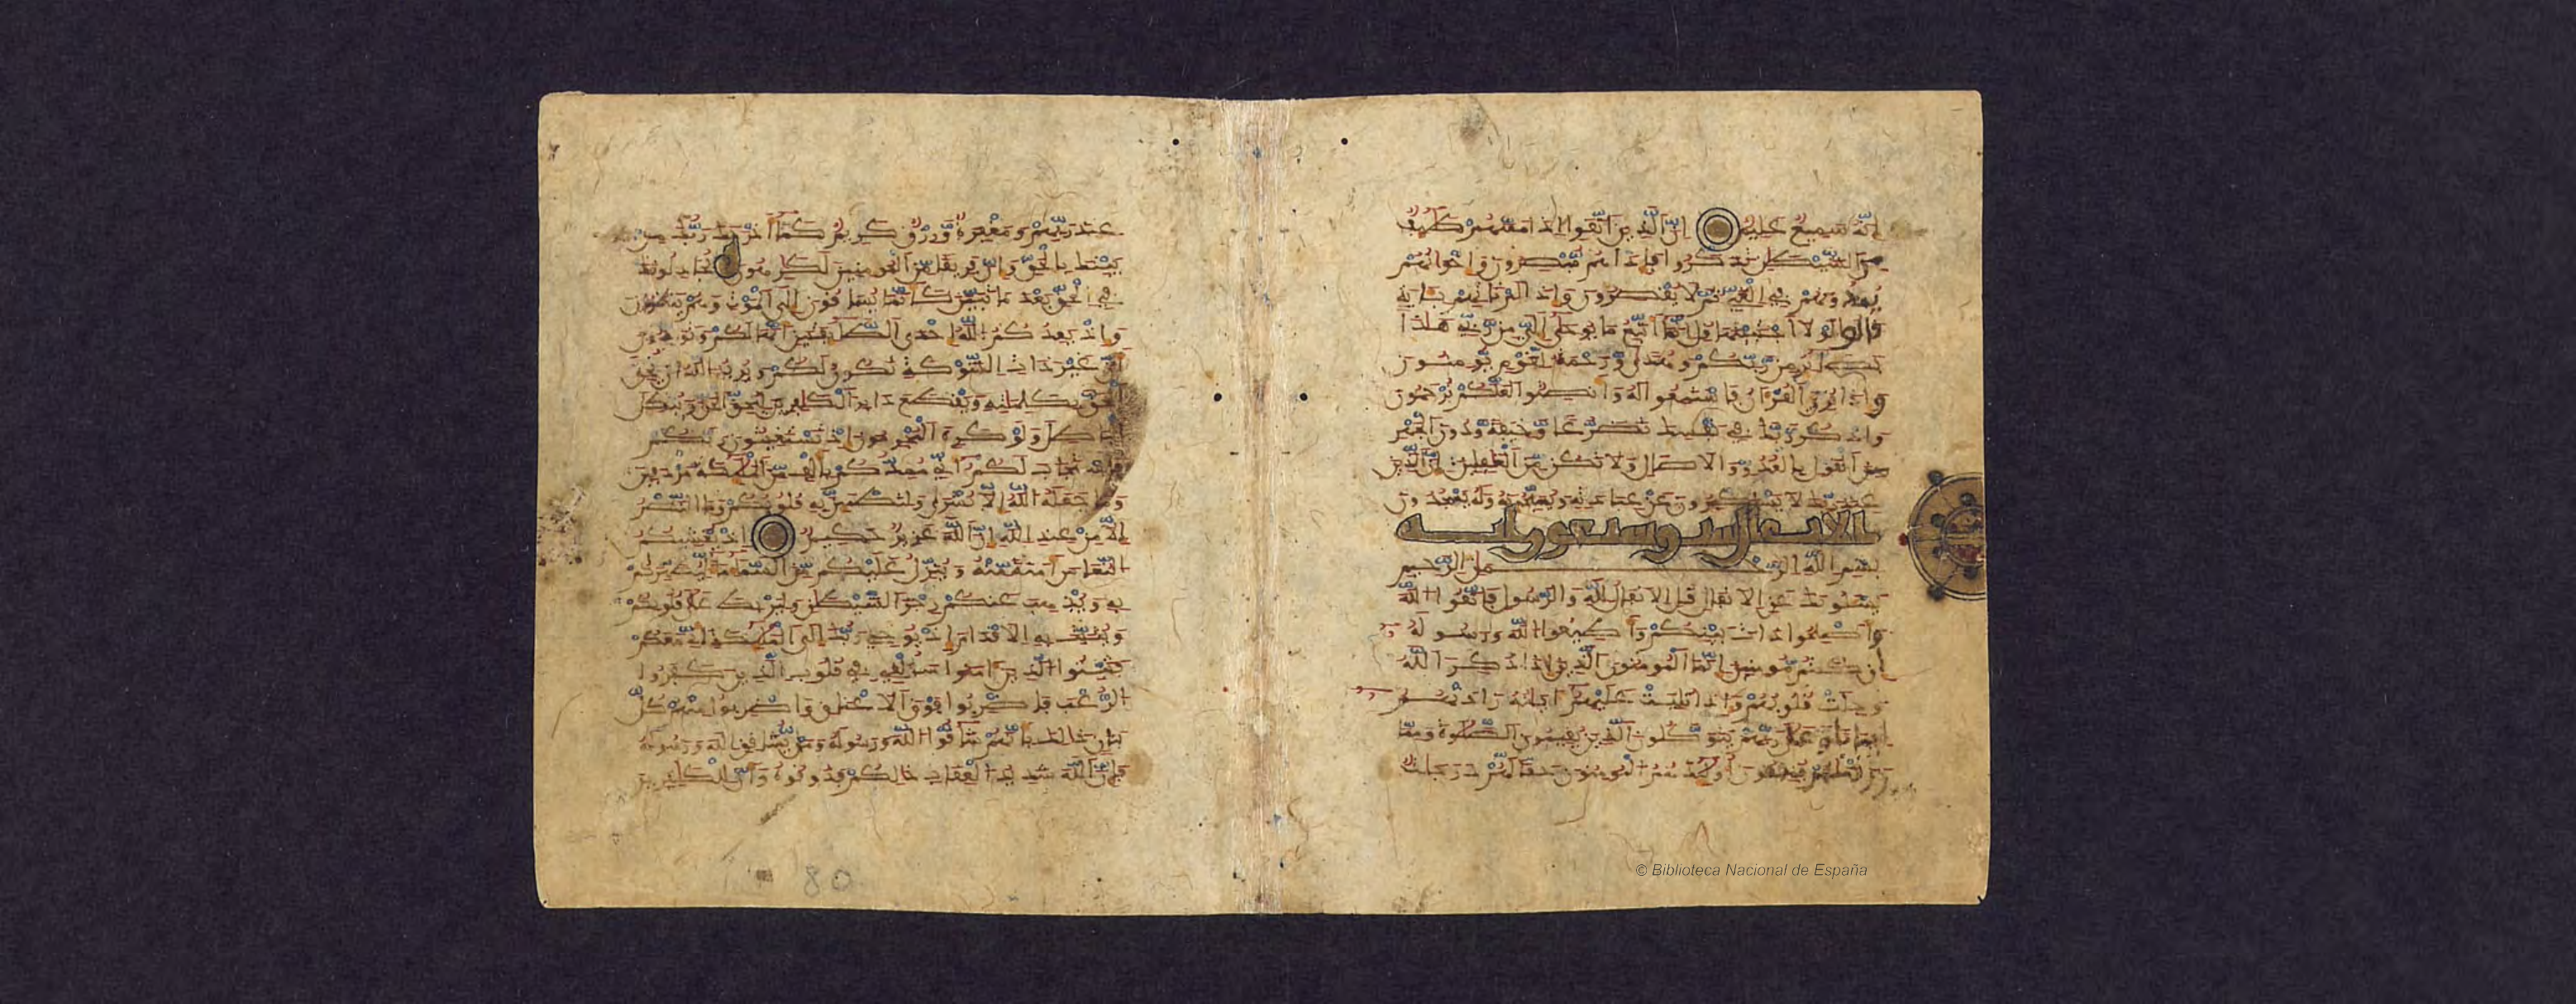 إنه سميع عليم إن الذين اتقوا إذا مسهم طيف
من الشيطن تذكروا فإذا هم مبصرون وإخوانهم
يمدونهم في الغي ثم لا يقصرون وإذا لم تأتهم بآية
قالوا لولا اجتبيتها قل إنما أتبع ما يوحى إلي من ربي هذا
بصائر من ربكم وهدى ورحمة لقوم يومنون
وإذا قرئ القرآن فاستمعوا له وأنصتوا لعلكم ترحمون
واذكر ربك في نفسك تضرعا وخيفة ودون الجهر
من القول بالغدو والآصال ولا تكن من الغفلين إن الذين
عند ربك لا يستكبرون عن عبادته ويسبحونه وله يسجدون
الانفال ست وسبعون اية
بسم الله الرحمن الرحيم
يسئلونك عن الانفال قل الانفال لله والرسول فاتقوا الله
وأصلحوا ذات بينكم وأطيعوا الله ورسوله
إن كنتم مومنين إنما المومنون الذين إذا ذكر الله
وجلت قلوبهم وإذا تليت عليهم آياته زادتهم
إيمانا وعلى ربهم يتوكلون الذين يقيمون الصلوة ومما
رزقنهم ينفقون أولئك هم المومنون حقا لهم درجات
عند ربهم ومغفرة ورزق كريم كما أخرجك ربك من
بيتك بالحق وإن فريقا من المومنين لكرهون يجادلونك
في الحق بعد ما تبين كأنما يساقون إلى الموت وهم ينظرون
وإذ يعدكم الله إحدى الطائفتين أنها لكم وتودون
أن غير ذات الشوكة تكون لكم ويريد الله أن يحق
الحق بكلماته ويقطع دابر الكفرين ليحق الحق ويبطل
الباطل ولو كره المجرمون إذ تستغيثون ربكم
فاستجاب لكم أني ممدكم بألف من الملئكة مردفين
وما جعله الله إلا بشرى ولتطمئن به قلوبكم وما النصر
إلا من عند الله إن الله عزيز حكيم إذ يغشيكم
النعاس أمنة منه وينزل عليكم من السماء ماء ليطهركم
به ويذهب عنكم رجز الشيطن وليربط على قلوبكم
ويثبت به الاقدام إذ يوحي ربك إلى الملئكة أني معكم
فثبتوا الذين آمنوا سألقي في قلوب الذين كفروا
الرعب فاضربوا فوق الاعناق واضربوا منهم كل
بنان ذلك بأنهم شاقوا الله ورسوله ومن يشاقق الله ورسوله
فإن الله شديد العقاب ذلكم فذوقوه وأن للكفرين
80
© Biblioteca Nacional de España